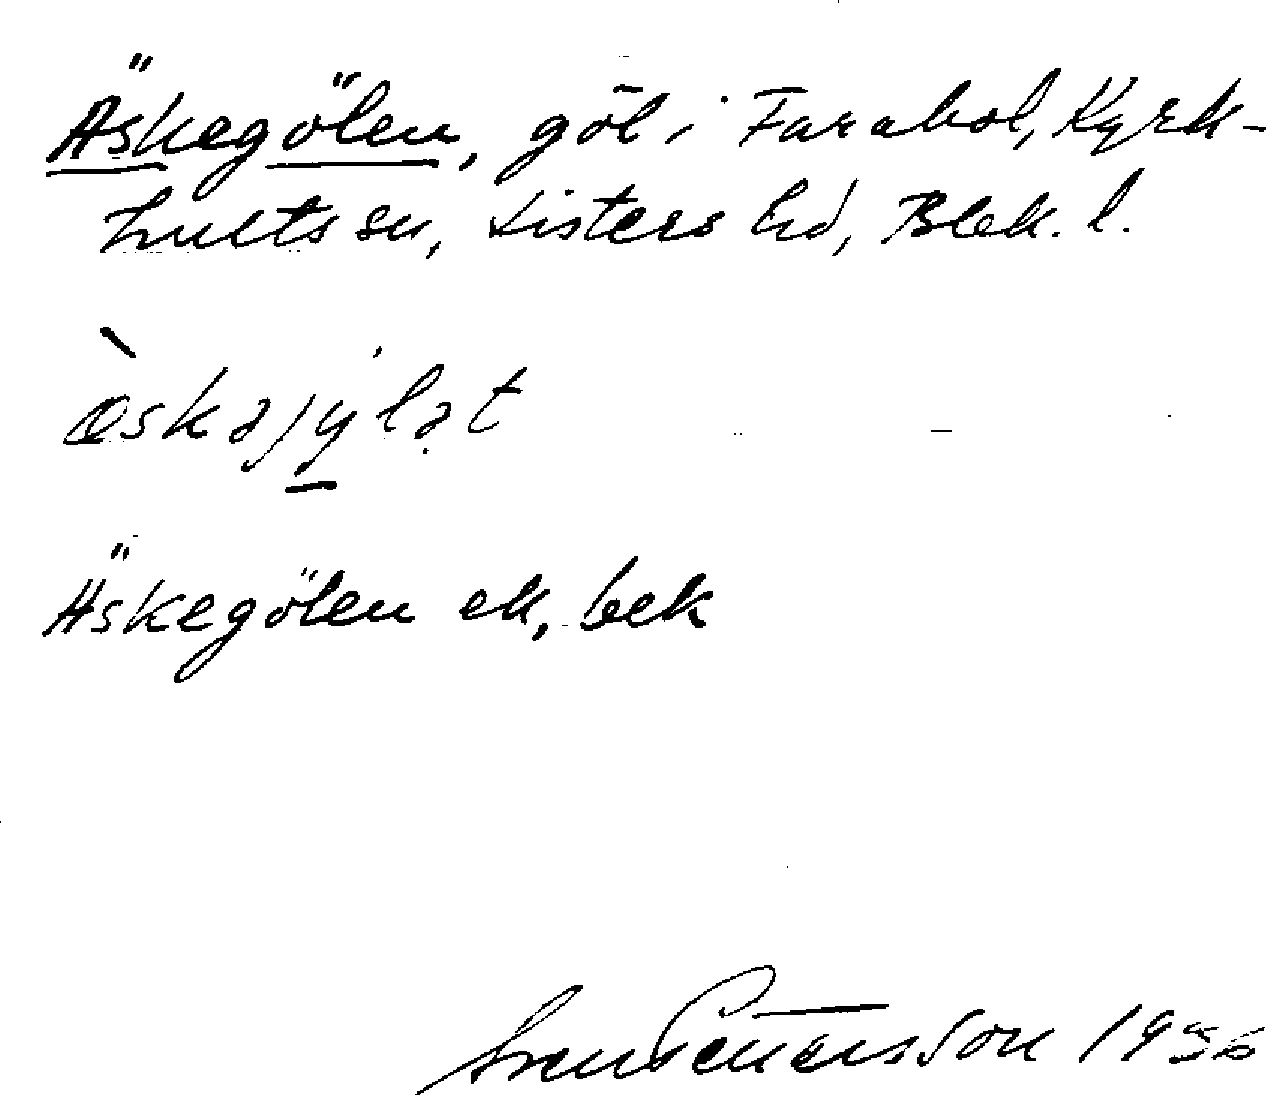 Äskegölen, göl i Farabol, Kyrk-
hults sn, Listers hd, Blek. l.
òskəjýlət
Äskegölen ek, bek
Sven Petersson 1936